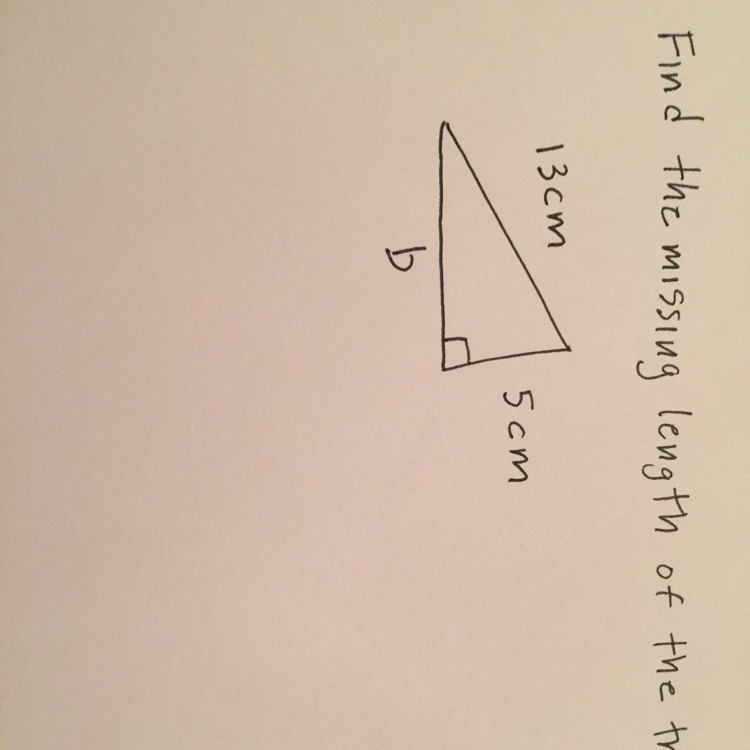 Find the missing length of the
13cm
5cm
b